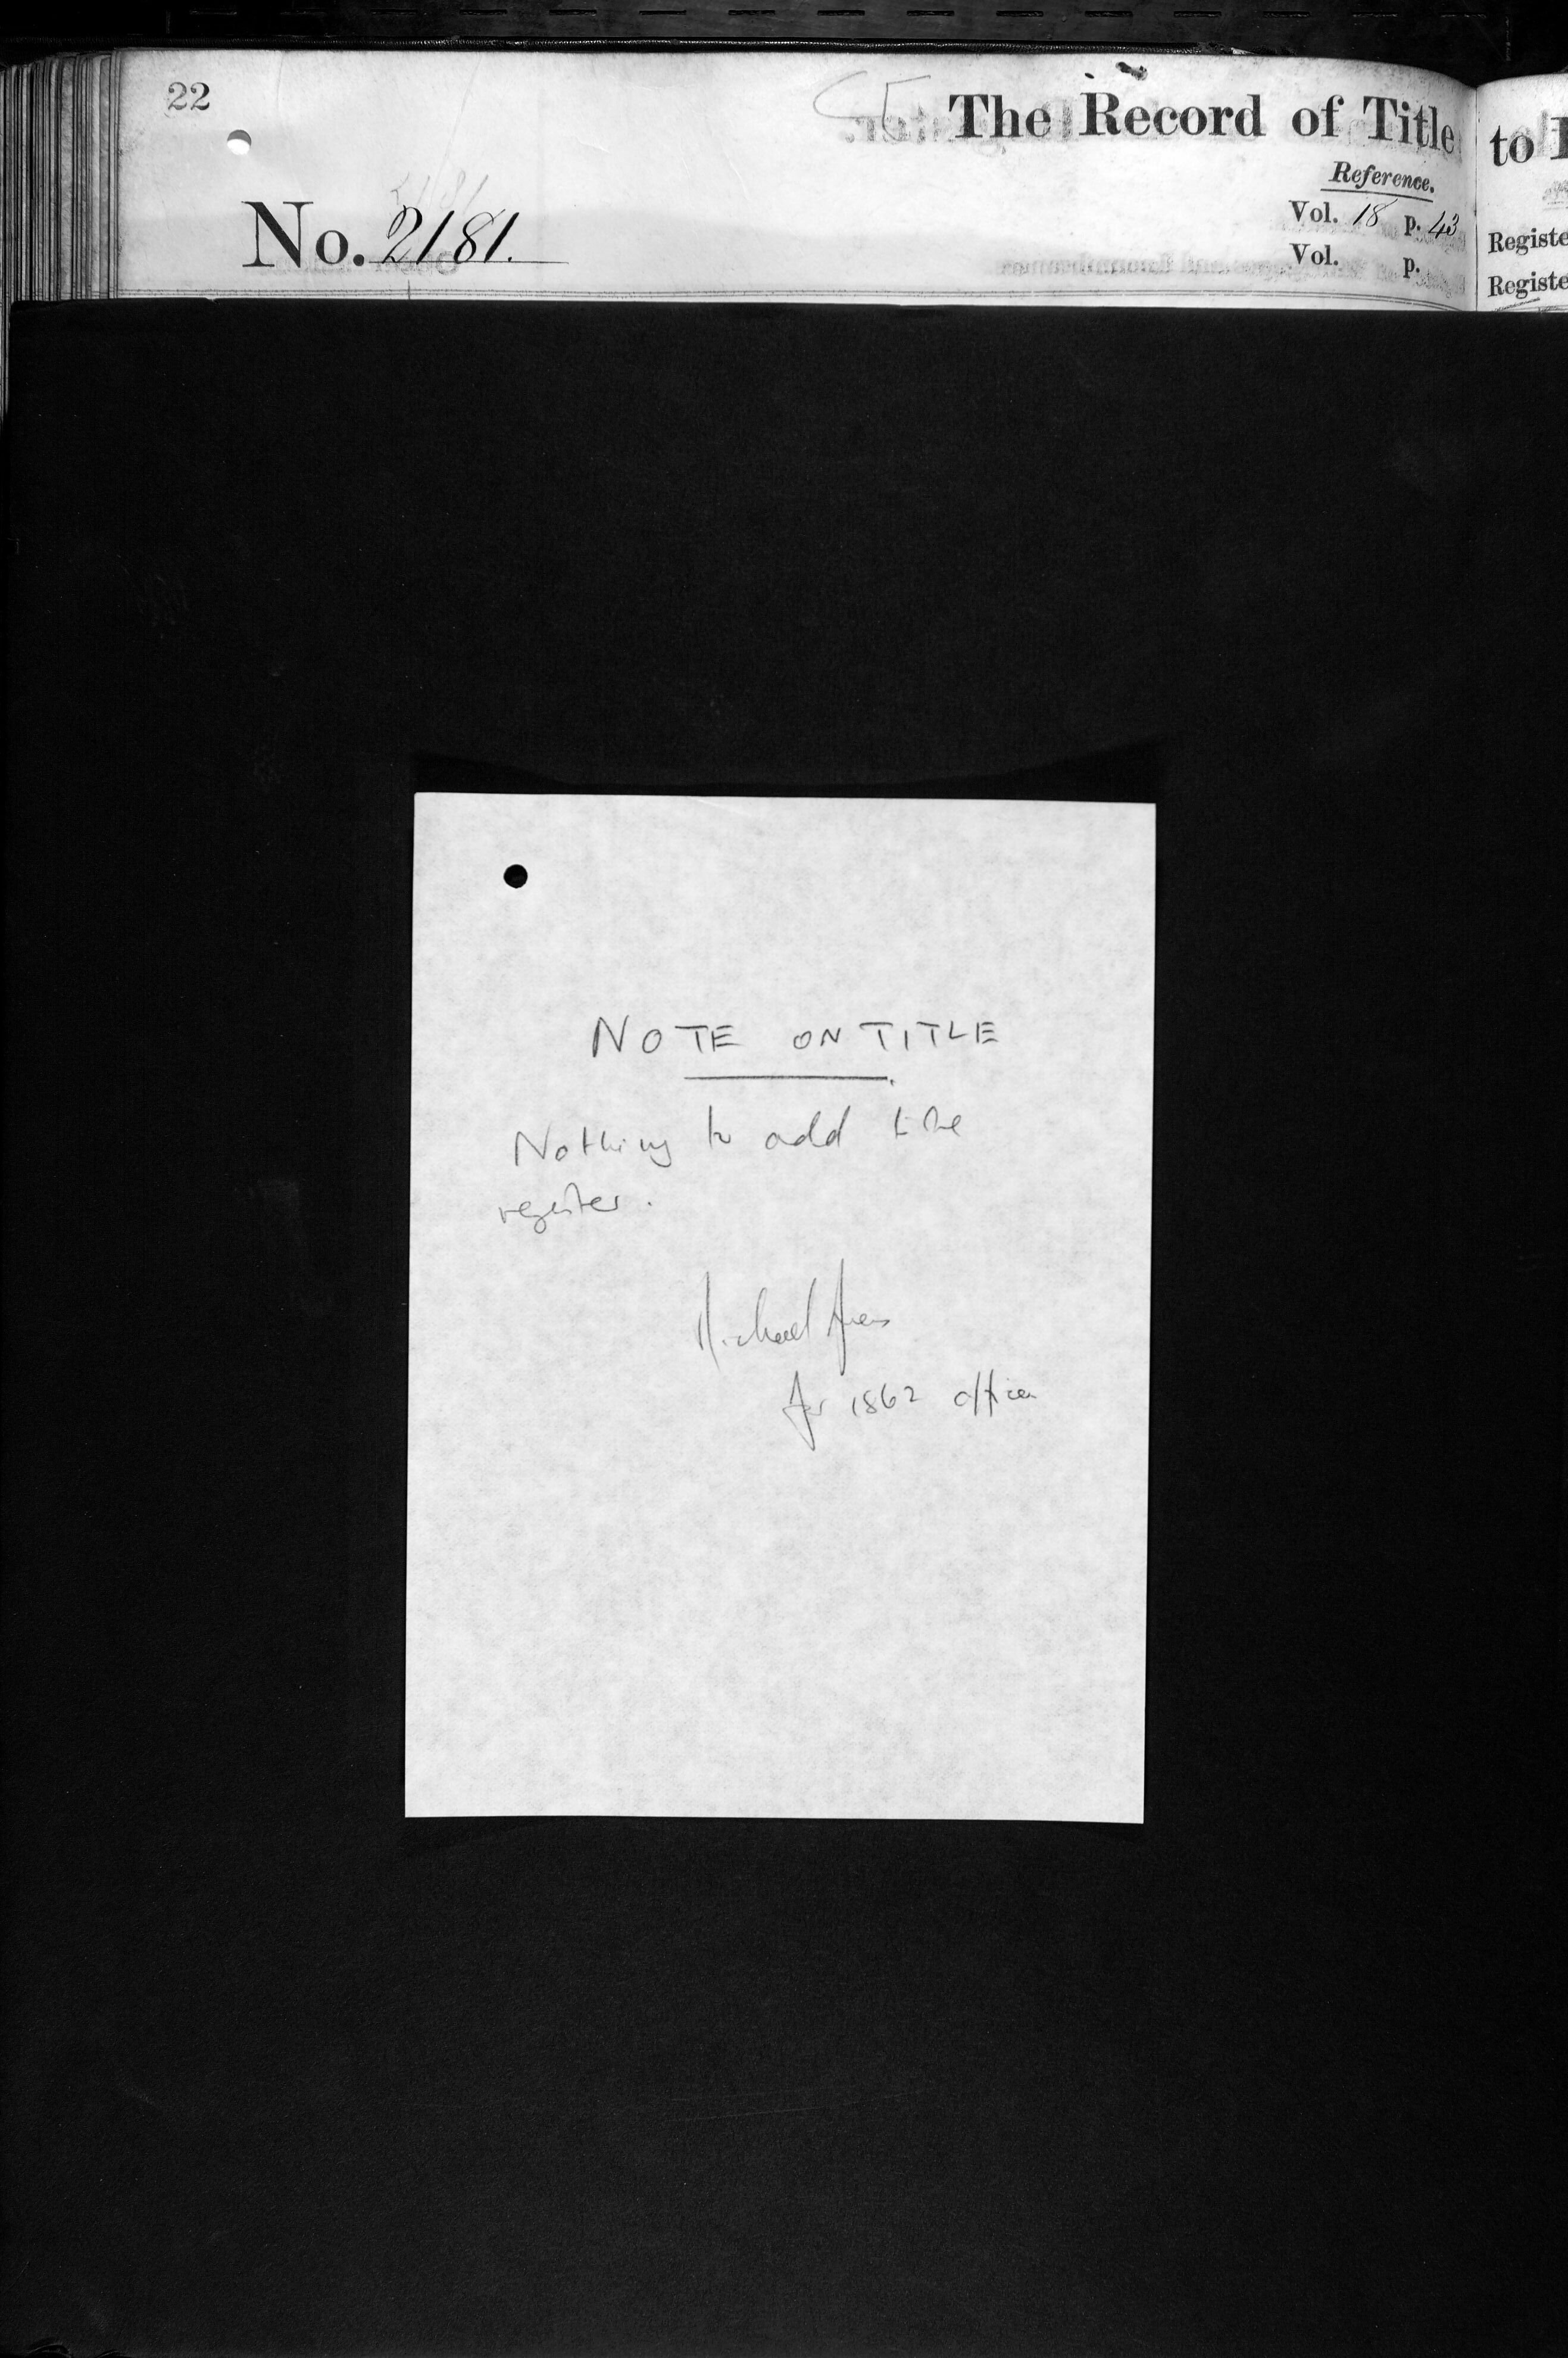 22
The Record of Title
to
Reference.
No. 2181.
Vol. 18 p. 43
Vol. p.
Registe
Registe
NOTE ON TITLE
Nothing to add to the
register.
Michael
for 1862 office